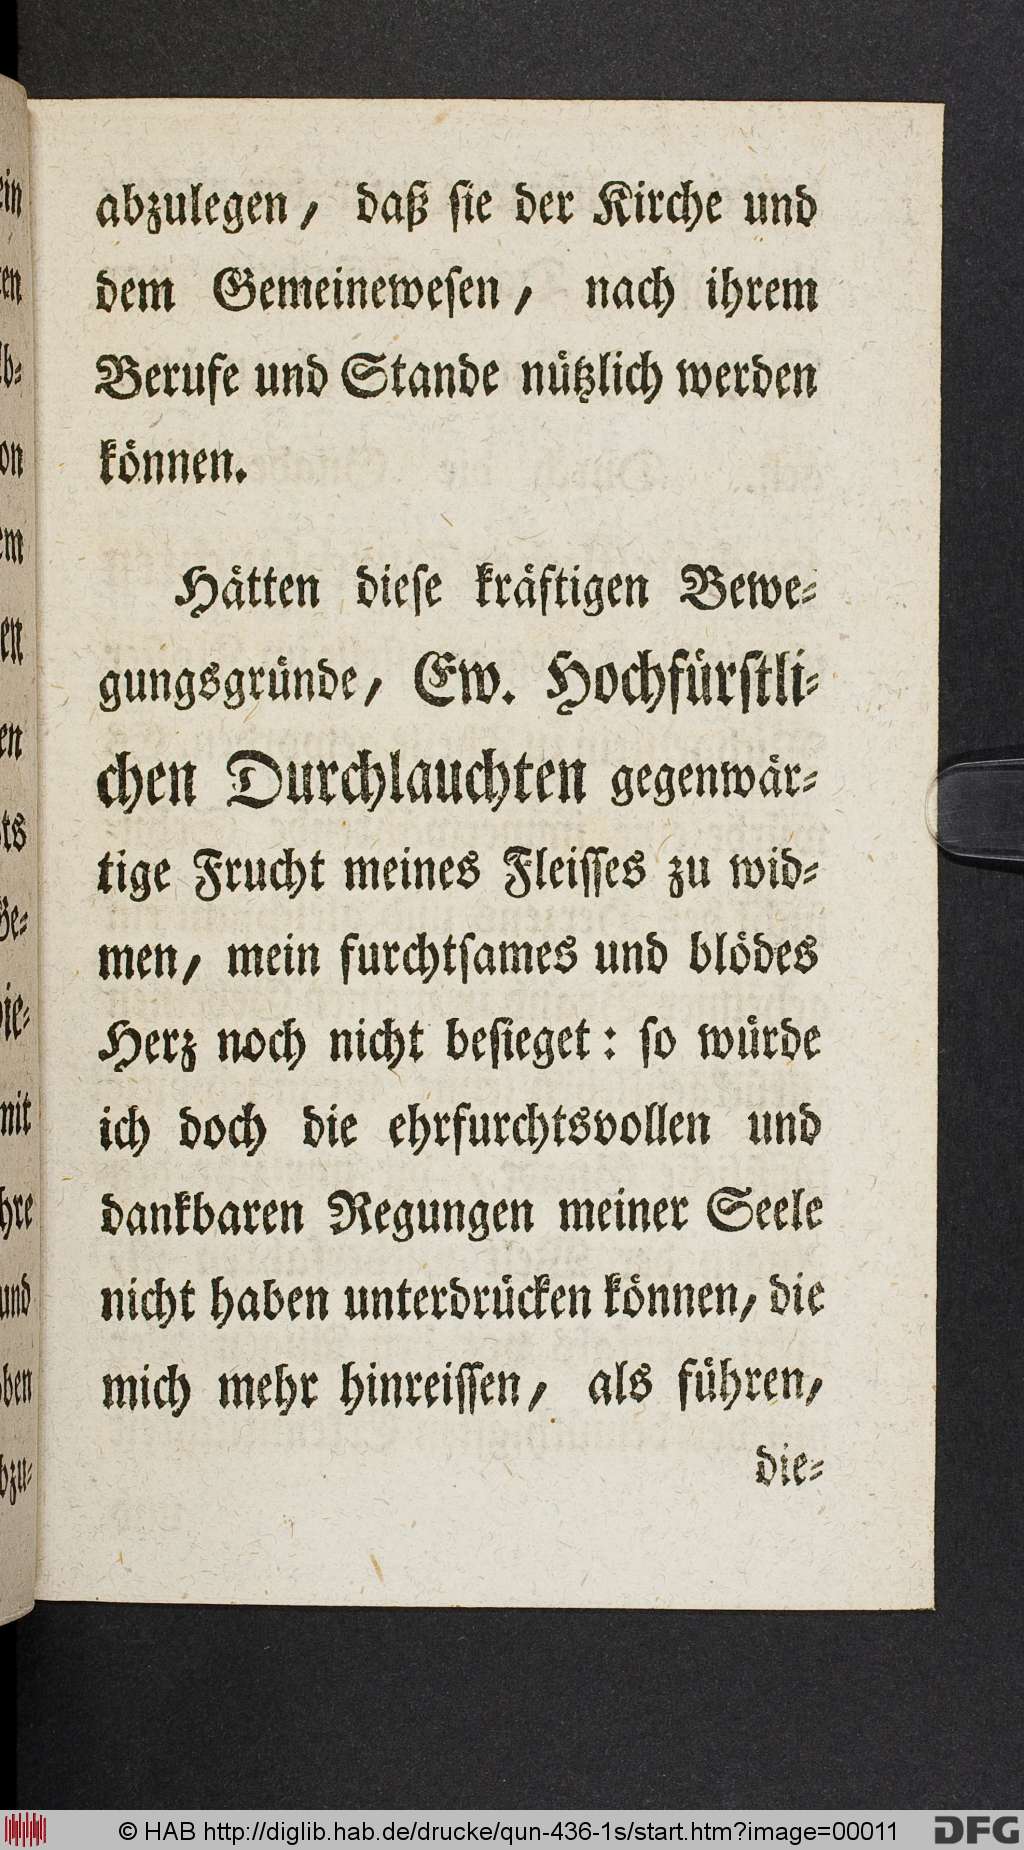 abzulegen, daß sie der Kirche und
dem Gemeinewesen, nach ihrem
Berufe und Stande nützlich werden
können.
Hätten diese kräftigen Bewe-
gungsgründe, Ew. Hochfürstli-
chen Durchlauchten gegenwär-
tige Frucht meines Fleisses zu wid-
men, mein furchtsames und blödes
Herz noch nicht besieget: so würde
ich doch die ehrfurchtsvollen und
dankbaren Regungen meiner Seele
nicht haben unterdrücken können, die
mich mehr hinreissen, als führen,
die-
© HAB http://diglib.hab.de/drucke/qun-436-1s/start.htm?image=00011
DFG